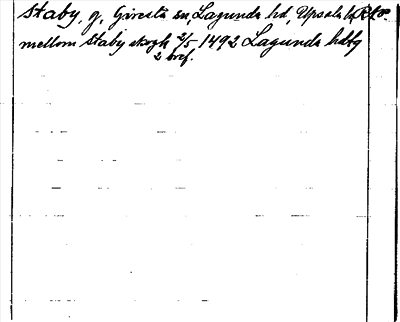 Staby, g, Giresta sn, Lagunda hd, Upsala l. RAp.
mellom Staby skogh 2/5 1492 Lagunda hdtg
2 bref.